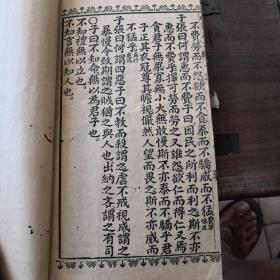 不費勞而不怨欲而不貪泰而不驕威而不猛
子張曰何謂惠而不費子曰因民之所利而利之斯不亦
惠而不費乎擇可勞而勞之又誰怨欲仁而得仁又焉
貪君子無衆寡無小大無敢慢斯不亦泰而不驕乎君
子正其衣冠尊其瞻視儼然人望而畏之斯不亦威而
不猛乎
子張曰何謂四惡子曰不教而殺謂之虐不戒視成謂之
暴慢令致期謂之賊猶之與人也出納之吝謂之有司
○子曰不知命無以為君子也
不知禮無以立也
不知言無以知人也